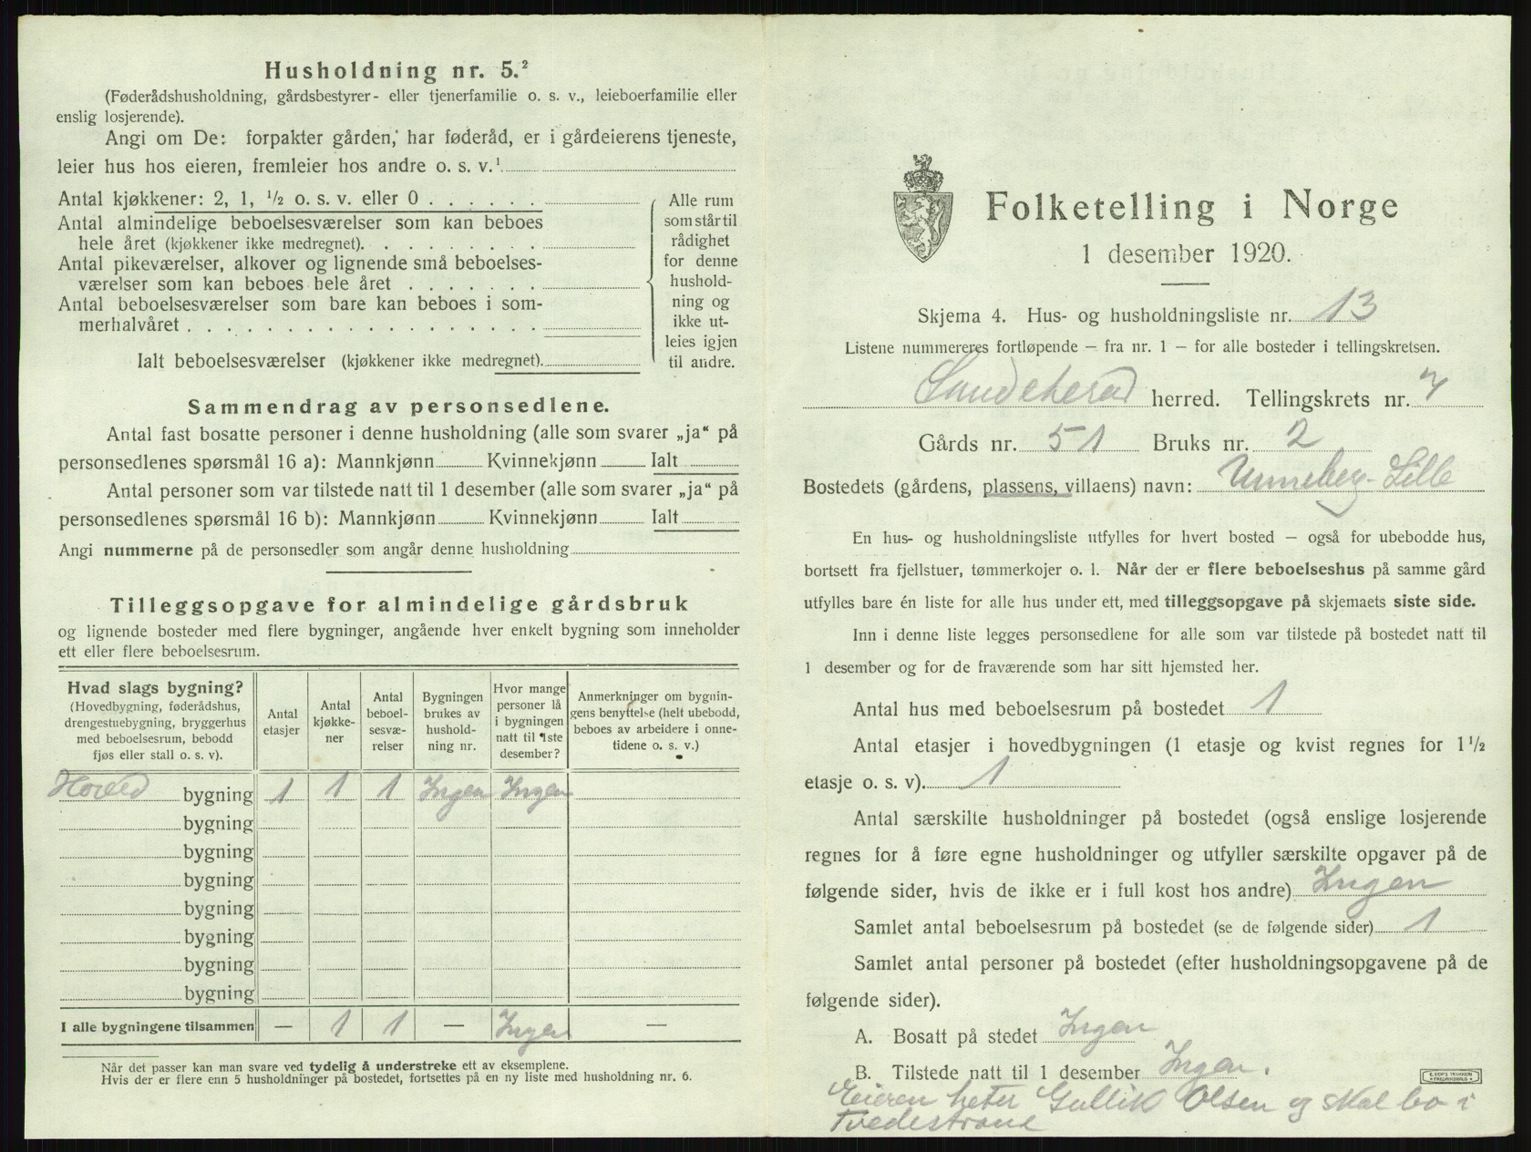 Husholdning nr. 5.²
(Føderådshusholdning, gårdsbestyrer- eller tjenerfamilie o. s. v., leieboerfamilie eller
enslig losjerende).
Angi om De: forpakter gården, har føderåd, er i gårdeierens tjeneste,
leier hus hos eieren, fremleier hos andre o. s. v.¹
Antal kjøkkener: 2, 1, ½ o. s. v. eller 0 . . . . . .
Antal almindelige beboelsesværelser som kan beboes
hele året (kjøkkener ikke medregnet). . . . . . . . .
Antal pikeværelser, alkover og lignende små beboelses-
værelser som kan beboes hele året . . . . . . .
Antal beboelsesværelser som bare kan beboes i som-
merhalvåret . . . . . . . . . . . . . . . . . .
Ialt beboelsesværelser (kjøkkener ikke medregnet).
Alle rum
som står til
rådighet
for denne
hushold-
ning og
ikke ut-
leies igjen
til andre.
Sammendrag av personsedlene.
Antal fast bosatte personer i denne husholdning (alle som svarer „ja“ på
personsedlenes spørsmål 16 a): Mannkjønn Kvinnekjønn Ialt
Antal personer som var tilstede natt til 1 desember (alle som svarer „ja“ på
personsedlenes spørsmål 16 b): Mannkjønn Kvinnekjønn Ialt
Angi nummerne på de personsedler som angår denne husholdning
Tilleggsopgave for almindelige gårdsbruk
og lignende bosteder med flere bygninger, angående hver enkelt bygning som inneholder
ett eller flere beboelsesrum.
Hvad slags bygning?
(Hovedbygning, føderådshus,
drengestuebygning, bryggerhus
med beboelsesrum, bebodd
fjøs eller stall o. s. v.).
Antal
etasjer
Antal
kjøkke-
ner
Antal
beboel-
sesvæ-
relser
Bygningen
brukes av
hushold-
ning nr.
Hvor mange
personer lå
i bygningen
natt til 1ste
desember?
Anmerkninger om bygnin-
gens benyttelse (helt ubebodd,
beboes av arbeidere i onne-
tidene o. s. v.)
Hoved bygning 1 1 1 Ingen Ingen
bygning
bygning
bygning
bygning
bygning
bygning
bygning
I alle bygningene tilsammen — 1 1 — Ingen —
Når det passer kan man svare ved tydelig å understreke ett av eksemplene.
Hvis der er flere enn 5 husholdninger på bostedet, fortsettes på en ny liste med husholdning nr. 6.
Folketelling i Norge
1 desember 1920.
Skjema 4. Hus- og husholdningsliste nr. 13
Listene nummereres fortløpende — fra nr. 1 — for alle bosteder i tellingskretsen.
Sandeherad herred. Tellingskrets nr. 7
Gårds nr. 51 Bruks nr. 2
Bostedets (gårdens, plassens, villaens) navn: Unneberg-Lille
En hus- og husholdningsliste utfylles for hvert bosted — også for ubebodde hus,
bortsett fra fjellstuer, tømmerkojer o. l. Når der er flere beboelseshus på samme gård
utfylles bare én liste for alle hus under ett, med tilleggsopgave på skjemaets siste side.
Inn i denne liste legges personsedlene for alle som var tilstede på bostedet natt til
1 desember og for de fraværende som har sitt hjemsted her.
Antal hus med beboelsesrum på bostedet 1
Antal etasjer i hovedbygningen (1 etasje og kvist regnes for 1½
etasje o. s. v). 1
Antal særskilte husholdninger på bostedet (også enslige losjerende
regnes for å føre egne husholdninger og utfyller særskilte opgaver på de
følgende sider, hvis de ikke er i full kost hos andre) Ingen
Samlet antal beboelsesrum på bostedet (se de følgende sider) 1
Samlet antal personer på bostedet (efter husholdningsopgavene på de
følgende sider).
A. Bosatt på stedet Ingen
B. Tilstede natt til 1 desember Ingen.
Eieren heter Gullik Olsen og skal bo i
Tvedestrand